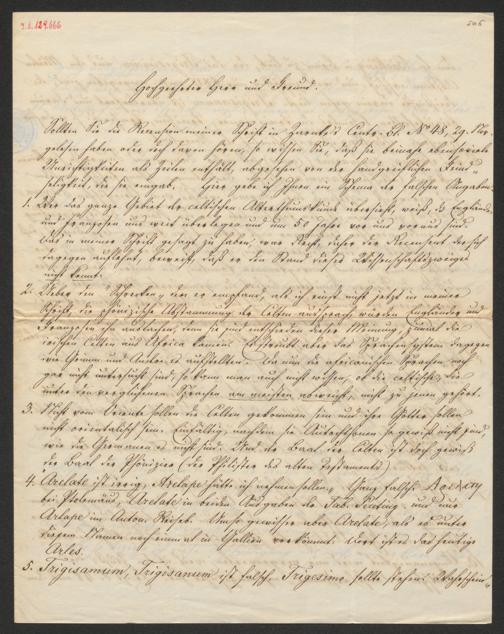 9.L.129.666
506
Hochgeehrter Herr und Freund.
Sollten Sie die Recension meiner Schrift in Zarncke's Centr. Bl. No 48, 29. Nov.
gelesen haben oder noch davon hören, so wissen Sie, daß sie beinahe ebensoviele
Unrichtigkeiten als Zeilen enthält, abgesehen von der handgreiflichen Feind-
seligkeit, die sie eingab. Hier gebe ich Ihnen ein Schema der falschen Angaben.
1. Wer das ganze Gebiet der celtischen Alterthumskunde übersieht, weiß, daß Engländer
und Franzosen uns weit überlegen und um 50 Jahre vor uns voraus sind.
Das in meiner Schrift gesagt zu haben, war Recht, daher der Recensent der sich
dagegen auflehnt, beweist, daß er den Stand dieses Wissenschaftszweiges
nicht kennt.
2. Ueber den "Schrecken", den er empfand, als ich nicht jetzt in meiner
Schrift, die phönizische Abstammung der Celten aussprach, würden Engländer und
Franzosen ihn auslachen, denn sie sind entschieden dieser Meinung, zumal die
irischen Celten aus Africa kamen. Er sträubt aber das Sprachensystem dagegen
wie Grimm und Andere es aufstellten. Da nun die africanischen Sprachen noch
gar nicht untersucht sind, so kann man auch nicht wissen, ob die celtische, die
unter den verglichenen Sprachen am meisten abweicht, nicht zu jenen gehört.
3. Nicht vom Oriente sollen die Celten gekommen sein und ihre Götter sollen
nicht orientalisch sein. Einfältig, nachdem sie Autochthonen so gewiß nicht sind,
wie die Germanen es nicht sind. Und der Baal der Celten ist doch gewiß
der Baal der Phönizier (der Philister des alten Testaments)
4. Arelate ist irrig, Arelape hätte ich nehmen sollen. Ganz falsch:
bei Ptolemäus, Arelate in beiden Ausgaben der Tab. Peuting. und nur
Arlape im Anton. Reiseb. Umso gewisser aber Arelate, als es unter
diesem Namen noch einmal in Gallien vorkömmt. Dort ist es das heutige
Arles.
5. Trigisamum, Trigisanum ist falsch, Trigesimo sollte stehen. Wahrschein-